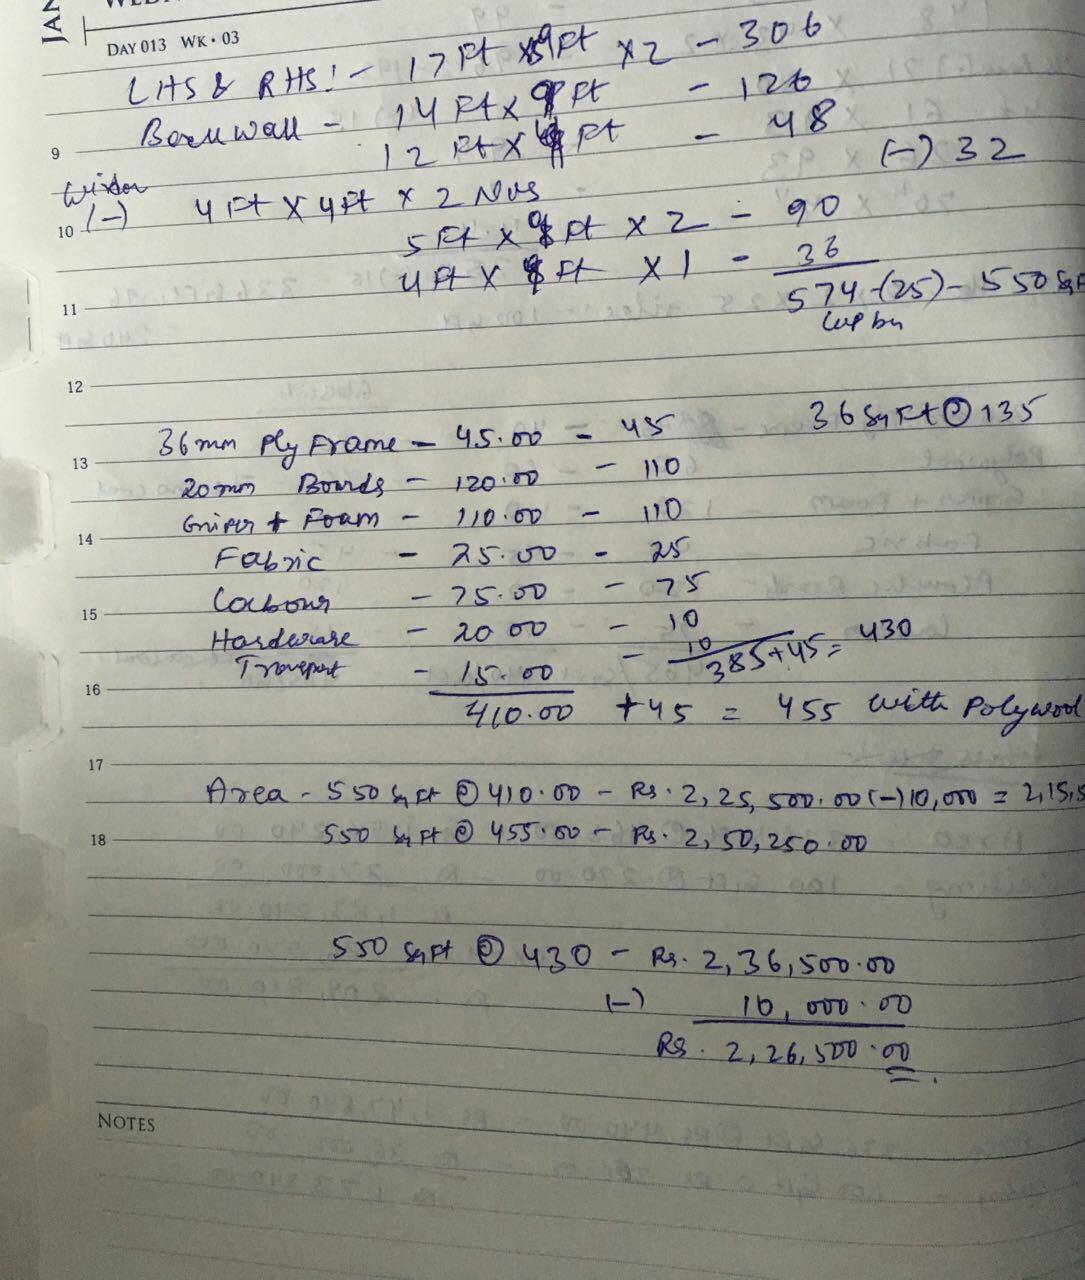 JAN
DAY 013 WK · 03
LHS & RHS! - 17 Ft x 9 Ft x 2 - 306
Back wall - 14 Ft x 9 Ft - 126
9
12 Ft x 4 Ft - 48
(-) 4 Ft x 4 Ft x 2 Nos (-) 32
10
5 Ft x 9 Ft x 2 - 90
4 Ft x 9 Ft x 1 - 36
11
574 - (25) - 550 Sq F
12
36 Sq Ft @ 135
36 mm Ply Frame - 45.00 = 45
13
20 mm Boards - 120.00 - 110
Griper + Foam - 110.00 - 110
14
Fabric - 25.00 - 25
Labour - 75.00 - 75
15
Hardware - 20 00 - 10
Transport - 15.00 - 10
385+45 = 430
16
410.00 + 45 = 455 with Polywool
17
Area - 550 Sq Ft @ 410.00 - Rs. 2,25,500.00 (-) 10,000 = 2,15,5
18
550 Sq Ft @ 455.00 - Rs. 2,50,250.00
550 Sq Ft @ 430 - Rs. 2,36,500.00
(-) 10,000.00
Rs. 2,26,500.00
NOTES